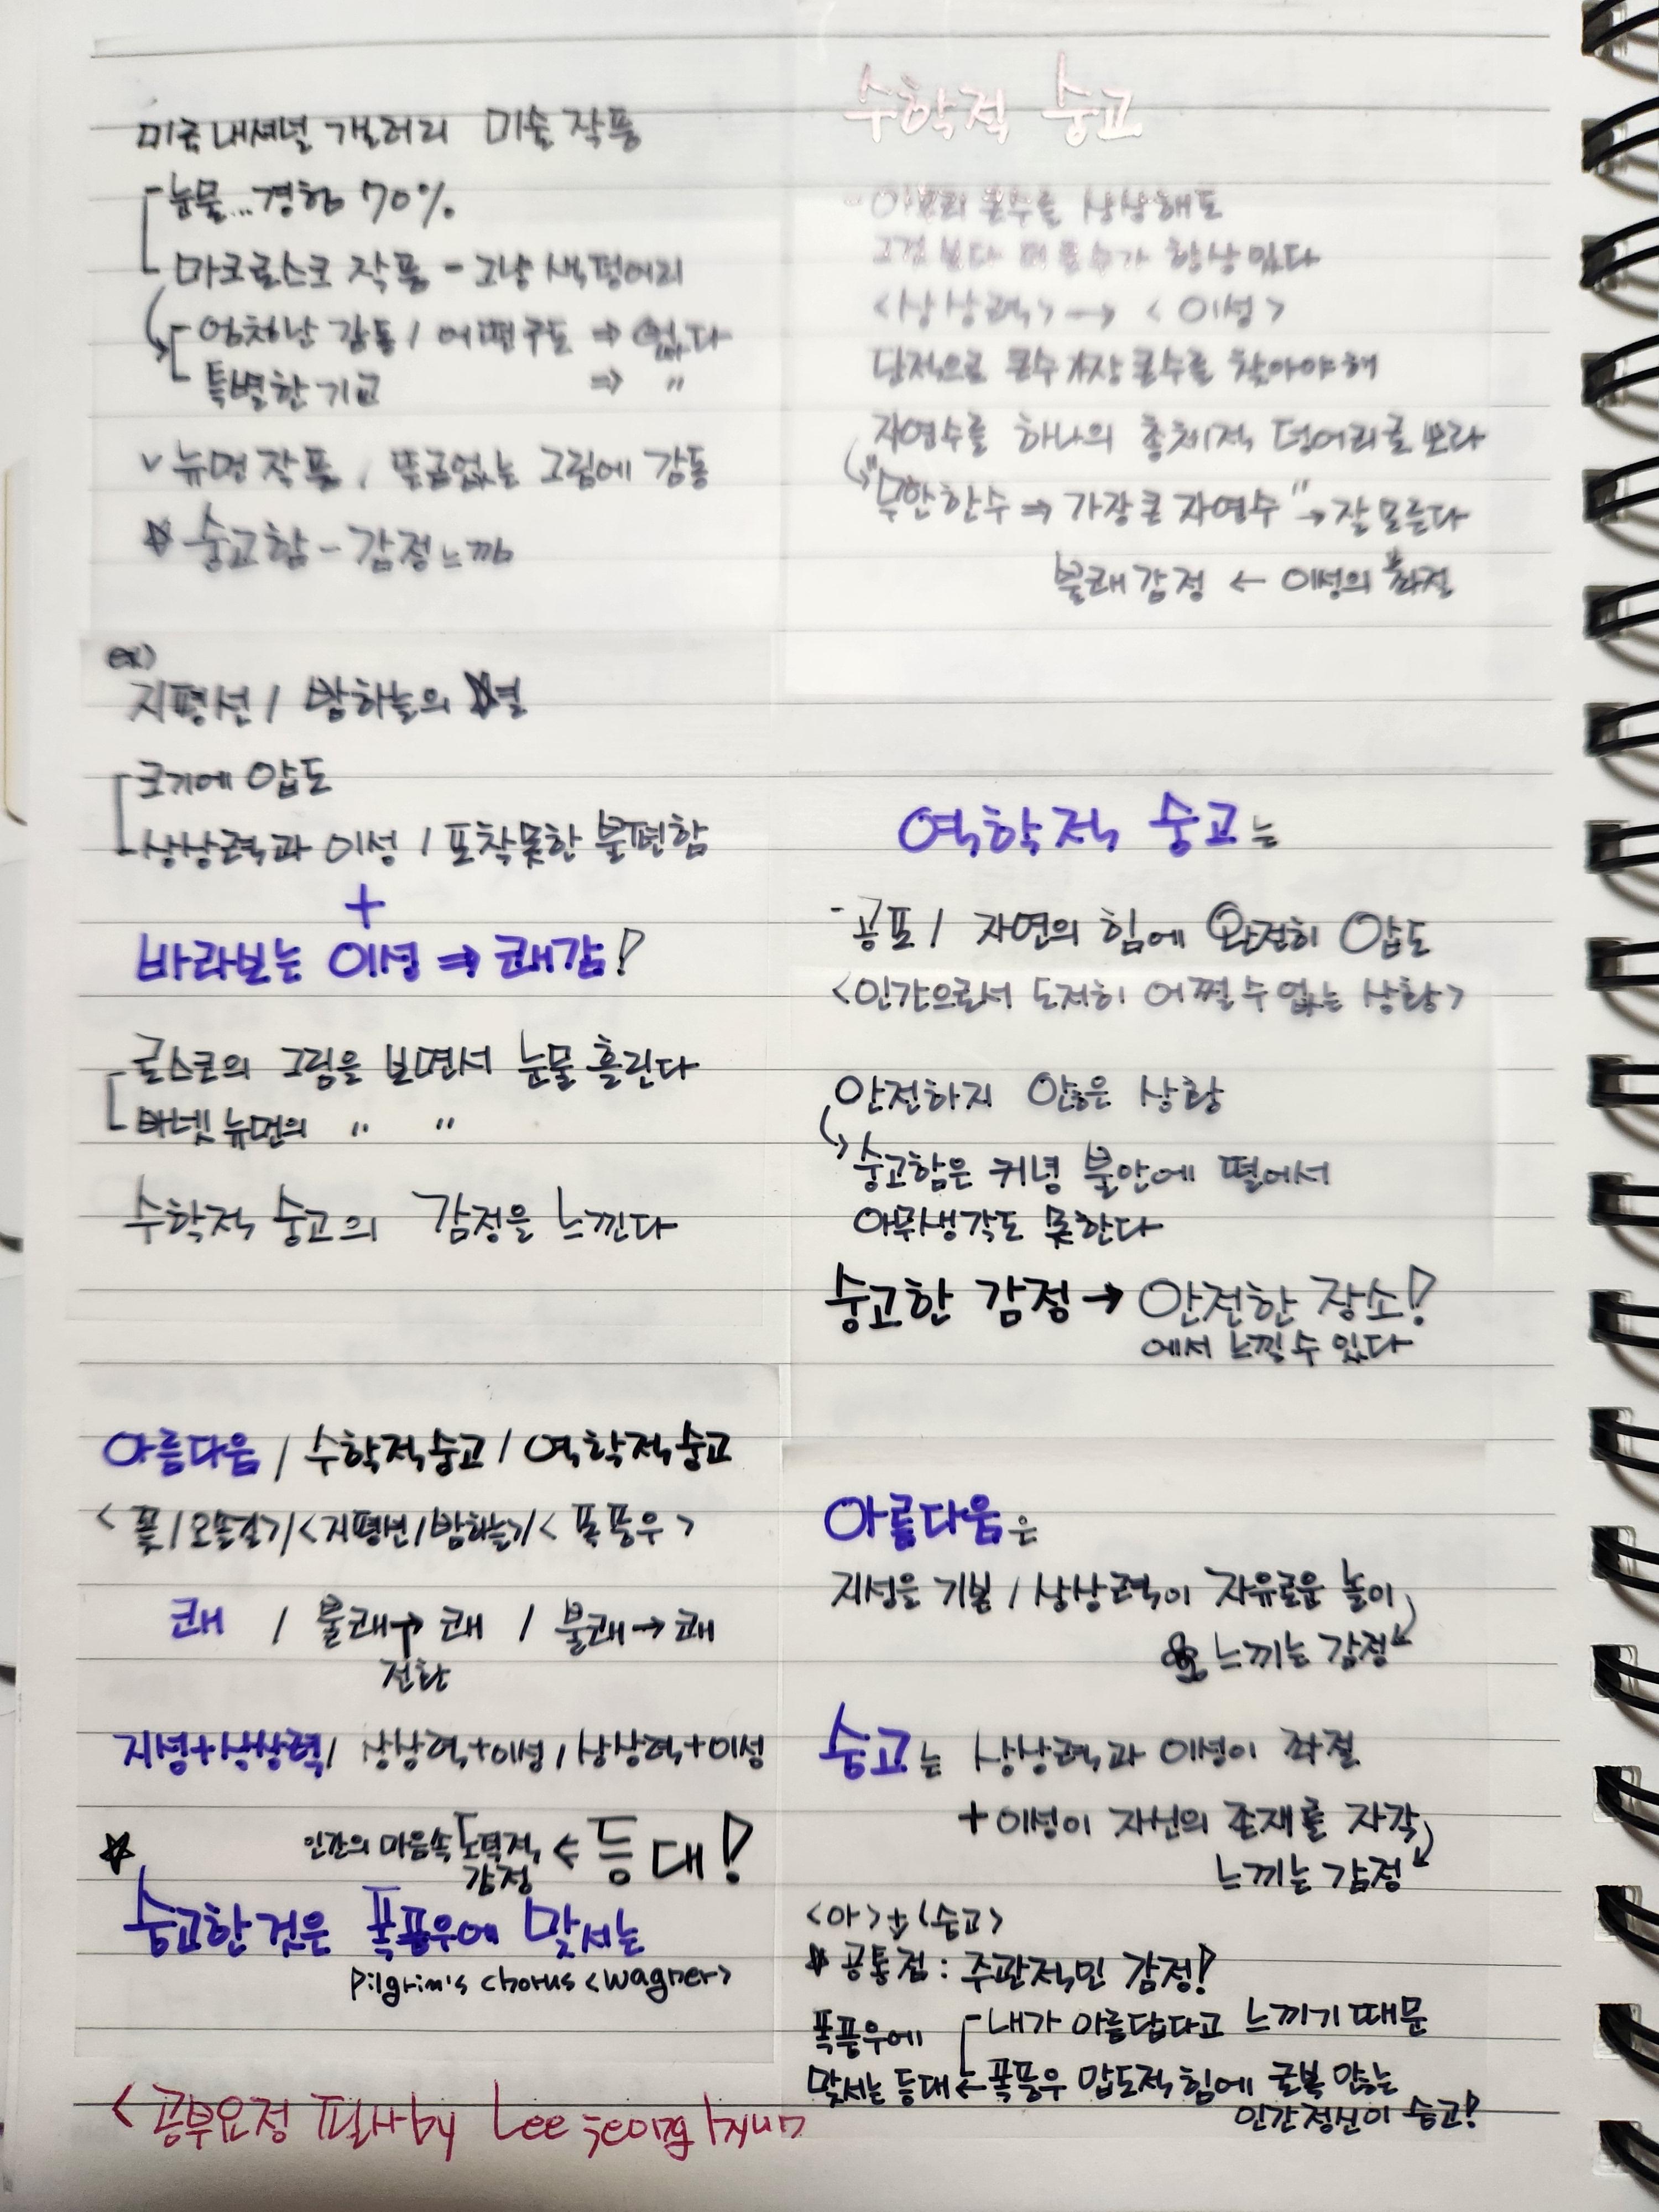 미국 내셔널 갤러리 미술 작품
눈물... 경험 70%
마크로스코 작품 - 그냥 색덩어리
엄청난 감동 / 어떤 구도 ⇒ 없다
특별한 기교 ⇒ "
v 뉴먼 작품, 뜬금없는 그림에 감동
☆ 숭고함 - 감정느낌
ex)
지평선 / 밤하늘의 ☆별
크기에 압도
상상력과 이성 / 포착못한 불편함
+
바라보는 이성 ⇒ 쾌감!
로스코의 그림을 보면서 눈물 흘린다
바넷 뉴먼의 " "
수학적 숭고의 감정을 느낀다
아름다움 / 수학적숭고 / 역학적숭고
<꽃/오솔길>/<지평선/밤하늘>/<폭풍우>
쾌 / 불쾌→쾌 / 불쾌→쾌
전환
지성+상상력/ 상상력+이성 / 상상력+이성
☆ 인간의 마음속 도덕적 ← 등대!
감정
숭고한 것은 폭풍우에 맞서는
Pilgrim's chorus <wagner>
<공부요정 필사 by Lee jeong hyun
수학적 숭고
- 아무리 큰수를 상상해도
그것 보다 더 큰수가 항상 있다
<상상력> → <이성>
단적으로 큰수 가장 큰수를 찾아야 해
자연수를 하나의 총체적 덩어리로 보라
"무한한수 ⇒ 가장 큰 자연수" → 잘 모른다
불쾌감정 ← 이성의 좌절
역학적 숭고는
- 공포 / 자연의 힘에 완전히 압도
<인간으로서 도저히 어쩔 수 없는 상황>
안전하지 않은 상황
숭고함은 커녕 불안에 떨어서
아무생각도 못한다
숭고한 감정 → 안전한 장소!
에서 느낄 수 있다
아름다움은
지성은 기본 / 상상력이 자유로운 놀이
느끼는 감정
숭고는 상상력과 이성이 좌절
+ 이성이 자신의 존재를 자각
느끼는 감정
<아>+<숭고>
☆ 공통점 : 주관적인 감정!
폭풍우에 - 내가 아름답다고 느끼기 때문
맞서는 등대 ← 폭풍우 압도적 힘에 굴복 않는
인간정신이 숭고!